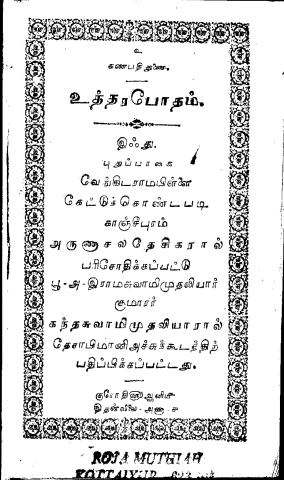 உ
கணபதிதுணை.
உத்தரபோதம்.
இஃது.
புதுப்பாகை
வேங்கிடராமபிள்ளை
கேட்டுக்கொண்டபடி
காஞ்சீபுரம்
அருணாசலதேசிகரால்
பரிசோதிக்கப்பட்டு
பூ-அ-இராமசுவாமிமுதலியார்
குமாரர்
கந்தசுவாமிமுதலியாரால்
தேசாபிமானிஅச்சுக்கூடத்திற்
பதிப்பிக்கப்பட்டது.
இதன்விலை-அணா-
ROJA MUTHIAH